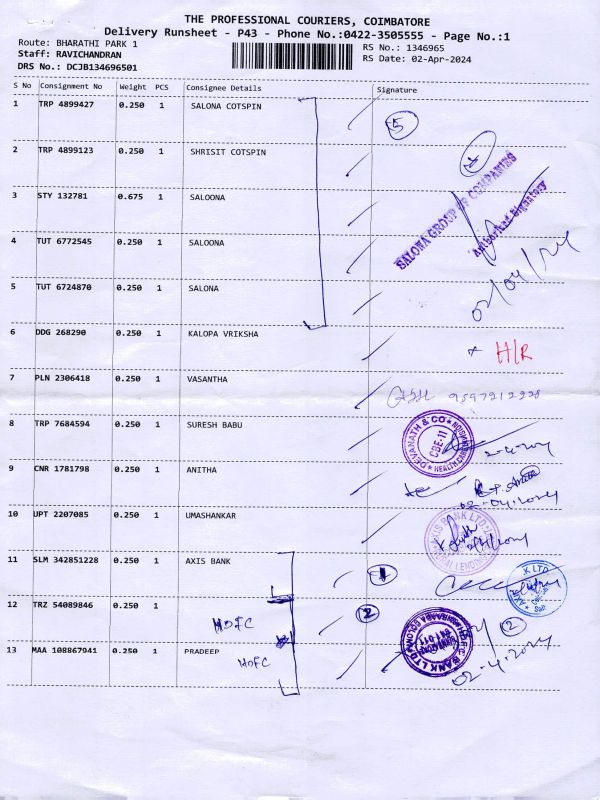 THE PROFESSIONAL COURIERS, COIMBATORE
Delivery Runsheet - P43 - Phone No.:0422-3505555 - Page No.:1
Route: BHARATHI PARK 1
RS No.: 1346965
Staff: RAVICHANDRAN
RS Date: 02-Apr-2024
DRS No.: DCJB134696501
S No Consignment No Weight PCS Consignee Details Signature
1 TRP 4899427 0.250 1 SALONA COTSPIN
5
2 TRP 4899123 0.250 1 SHRISIT COTSPIN
3 STY 132781 0.675 1 SALOONA
SALONA GROUP OF COMPANIES
Authorised Signatory
4 TUT 6772545 0.250 1 SALOONA
02/04/24
5 TUT 6724870 0.250 1 SALONA
6 DDG 268290 0.250 1 KALOPA VRIKSHA
H/R
7 PLN 2306418 0.250 1 VASANTHA
9597212228
8 TRP 7684594 0.250 1 SURESH BABU
DEVANATH & CO
CBE-11
9 CNR 1781798 0.250 1 ANITHA
02-04-2024
10 UPT 2207085 0.250 1 UMASHANKAR
AXIS BANK LTD
11 SLM 342851228 0.250 1 AXIS BANK
1
K LTD
12 TRZ 54089846 0.250 1
HDFC
2
12
13 MAA 108867941 0.250 1 PRADEEP
HDFC
BANK LTD
02-4-2024